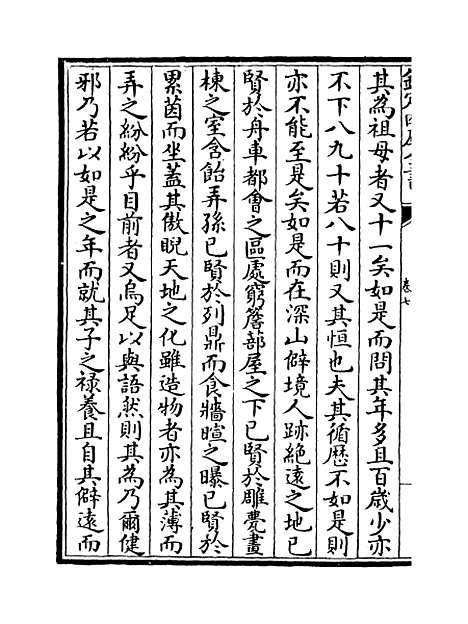 欽定四庫全書
卷七
其為祖母者又十一矣如是而問其年多且百歲少亦
不下八九十若八十則又其恒也夫其循歴不如是則
亦不能至是矣如是而在深山僻境人跡絶遠之地已
賢於舟車都會之區處窮簷蔀屋之下已賢於雕甍畫
棟之室含飴弄孫已賢於列鼎而食牆暄之曝已賢於
累茵而坐蓋其傲睨天地之化雖造物者亦為其薄而
弄之紛紛乎目前者又烏足以與語然則其為乃爾健
邪乃若以如是之年而就其子之禄養且自其僻逺而